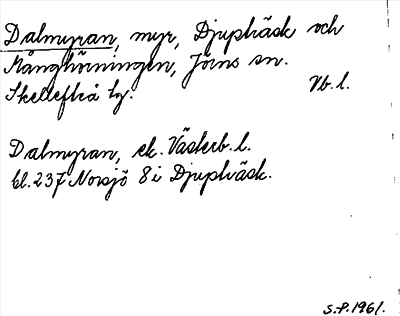 Dalmyran, myr, Djupträsk och
Månghörningen, Jörns sn.
Skellefteå tg. Vb. l.
Dalmyran, ek. Västerb. l.
bl. 237 Norsjö 8 i Djupträsk.
S.P. 1961.